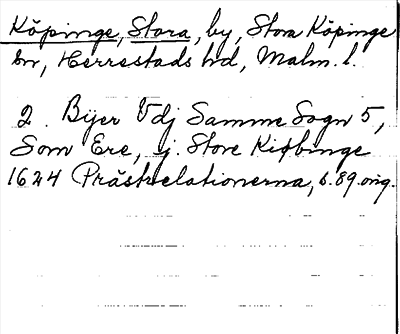 Köpinge, Stora, by, Stora Köpinge
sn, Herrestads hd, Malm. l.
2. Bijer Vdj Samme Sogn 5,
Som Ere, j. Store Kiøbinge
1624 Prästrelationerna, s. 89. orig.